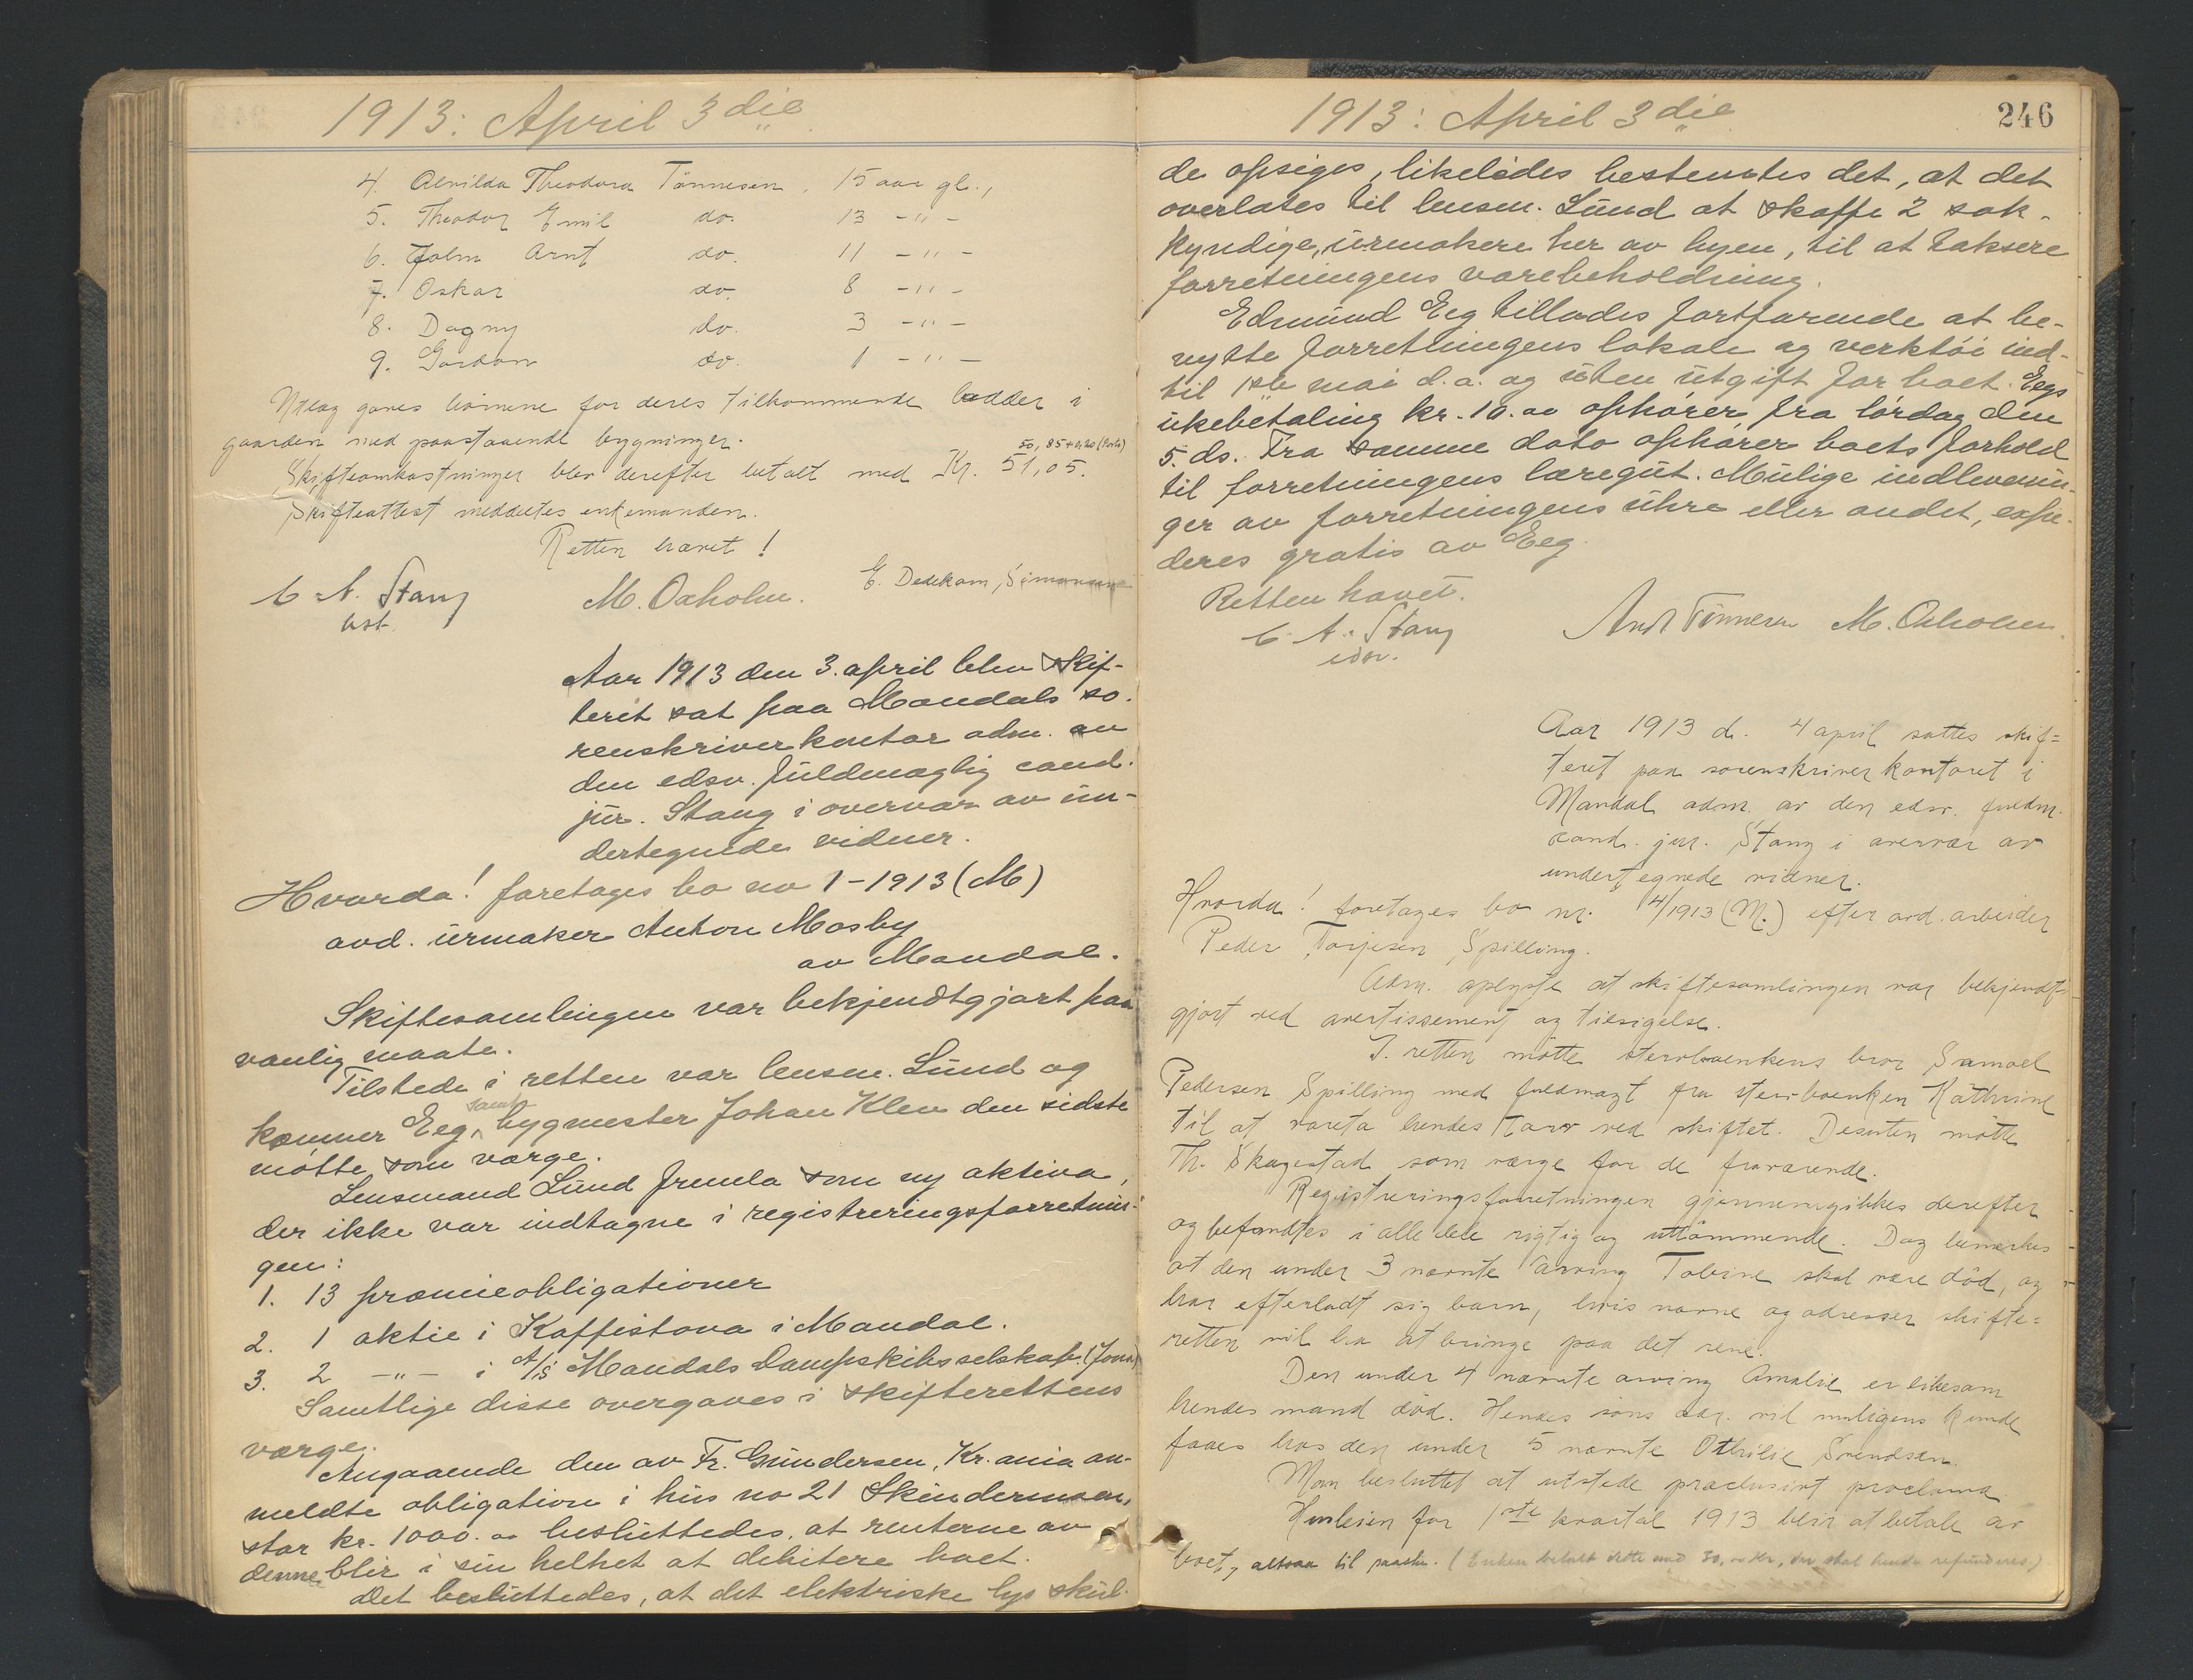 1913: April 3die
4. Alvilda Theodora Tönnesen, 15 aar gl.,
5. Theodor Emil do. 13 -"-
6. John Arnt do. 11 -"-
7. Oskar do. 8 -"-
8. Dagny do. 3 -"-
9. Gordon do. 1 -"-
Utlæg gaves börnene for deres tilkommende lodder i
gaarden med paastaaende bygninger.
50,85+0,20 (Porto)
Skifteomkostninger blev derefter betalt med Kr. 51,05.
Skifteattest meddeltes enkemanden.
Retten hævet!
C A. Stang
M. Oxholm.
E. Dedekam, Simonsen
Aar 1913 den 3. april blev skif-
terit sat paa Mandals so-
renskriverkontor adm. av
den edsv. fuldmægtig cand.
jur. Stang i overvær av un-
dertegnede vidner.
Hvorda! foretages bo no 1-1913 (M)
avd. urmaker Anton Mosby
av Mandal.
Skiftesamlingen var bekjendtgjort paa
vanlig maate.
Tilstede i retten var lensm. Lund og
kæmner Eeg, samt bygmester Johan Klev den sidste
mötte som værge.
Lensmand Lund fremla som ny aktiva,
der ikke var indtagne i registreringsforretnin-
gen:
1. 13 præmieobligationer
2. 1 aktie i Kaffistova i Mandal.
3. 2 -"- i A/S Mandals Dampskibsselskab.
Samtlige disse overgaves i skifterettens
værge.
Angaaende den av Fr. Gundersen, Kr.ania an-
meldte obligation i hus no 21 Skindermoen,
stor kr. 1000.00 besluttedes, at renterne av
denne blir i sin helhet at debitere boet.
Det besluttedes, at det elektriske lys skul-
1913: April 3die
246
de opsiges, likeledes bestemtes det, at det
overlates til lensm. Lund at skaffe 2 sak-
kyndige, urmakere her av byen, til at taksere
forretningens varebeholdning.
Edmund Eeg tillodes fortfarende at be-
nytte forretningens lokale og verktöi ind-
til 1ste mai d.a. og uten utgift for boet. Eegs
ukebetaling kr. 10.00 ophörer fra lördag den
5. ds. Fra samme dato ophörer boets forhold
til forretningens læregut. Mulige indleverin-
ger av forretningens uhre eller andet, expe-
deres gratis av Eeg.
Retten hævet.
C. A. Stang
edsv.
Andr Tönnesen M. Oxholm.
Aar 1913 d. 4 april sattes skif=
teret paa sorenskriverkontoret i
Mandal adm. av den edsv. fuldm.
cand. jur. Stang i overvær av
undertegnede vidner.
Hvorda! foretages bo nr. 4/1913 (M.) efter avd. arbeider
Peder Torjesen Spilling.
Adm. oplyste at skiftesamlingen var bekjendt-
gjort ved avertissement og tilsigelse.
I retten mötte stervboenkens bror Samoel
Pedersen Spilling med fuldmagt fra stervboenken Kathrine
til at vareta hendes tarv ved skiftet. Desuten mötte
Th. Skagestad som værge for de fraværende.
Registreringsforretningen gjennemgikkes derefter
og befandtes i alle dele rigtig og uttömmende. Dog bemerkes
at den under 3 nævnte arving Tobine skal være död, og
har efterladt sig barn, hvis navne og adresser skifte=
retten vil ha at bringe paa det rene.
Den under 4 nævnte arving Amalie er likesom
hendes mand död. Hendes söns adr. vil muligens kunde
faaes hos den under 5 nævnte Othilie Svendsen.
Man besluttet at utstede præclusivt proclama
Husleien for 1ste kvartal 1913 blir at betale av
boet, altsaa til paaske. (Enken betalt dette med 30,00 Kr, der skal hende refunderes.)